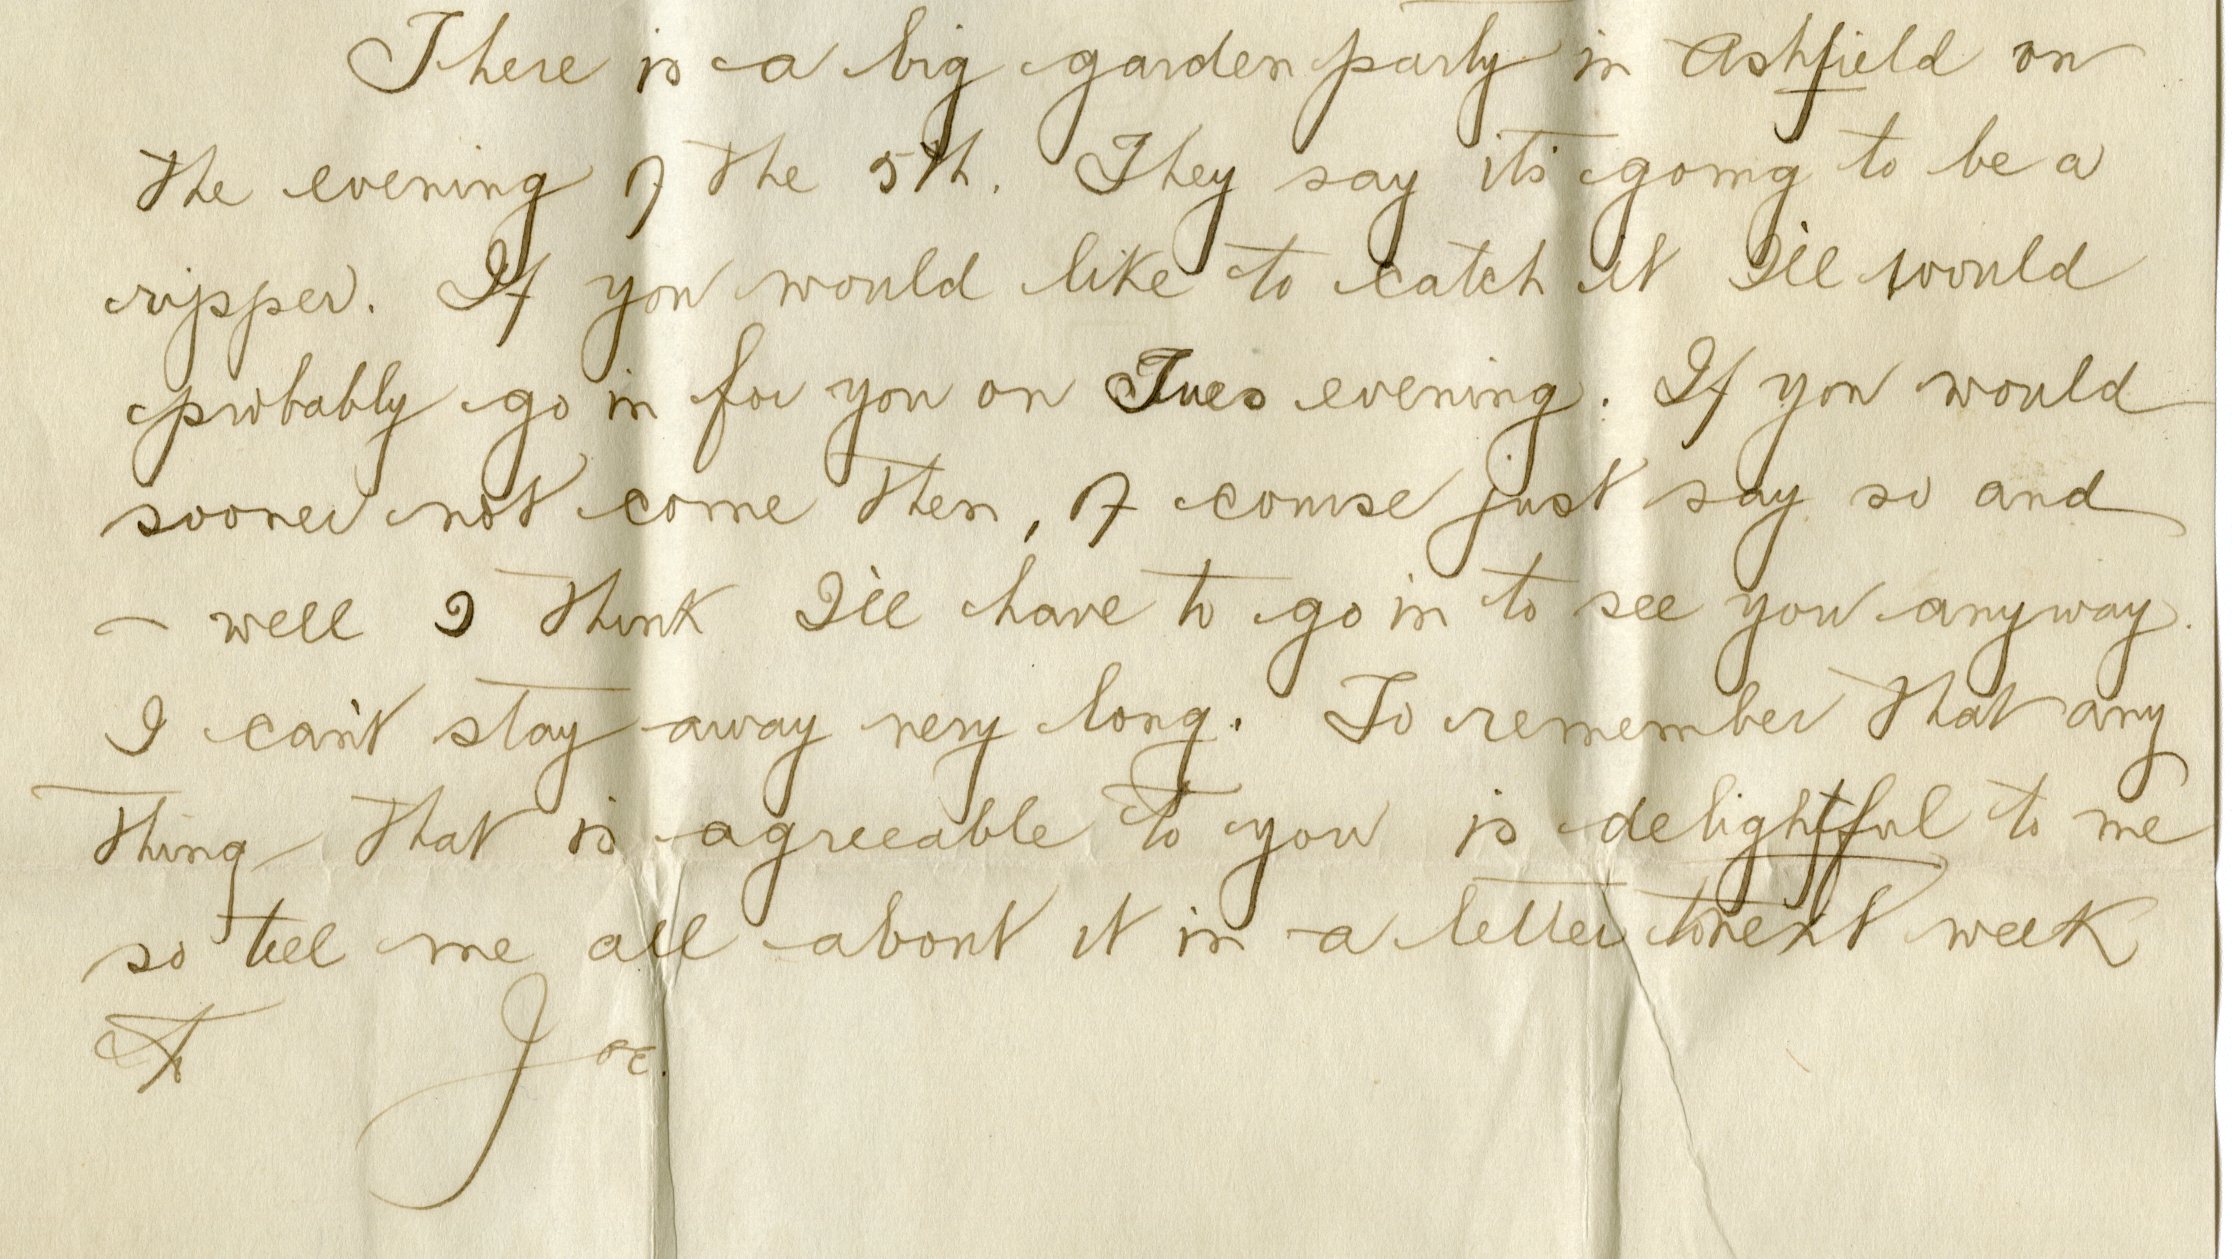 There is a big garden party in Ashfield on
the evening of the 5th. They say its going to be a
ripper. If you would like to catch it I'll would
probably go in for you on Tues evening. If you would
sooner not come then, of course just say so and
- well I think I'll have to go in to see you anyway.
I can't stay away very long. To remember that any
thing that is agreeable to you is delightful to me
so tell me all about it in a letter next week
Joe.